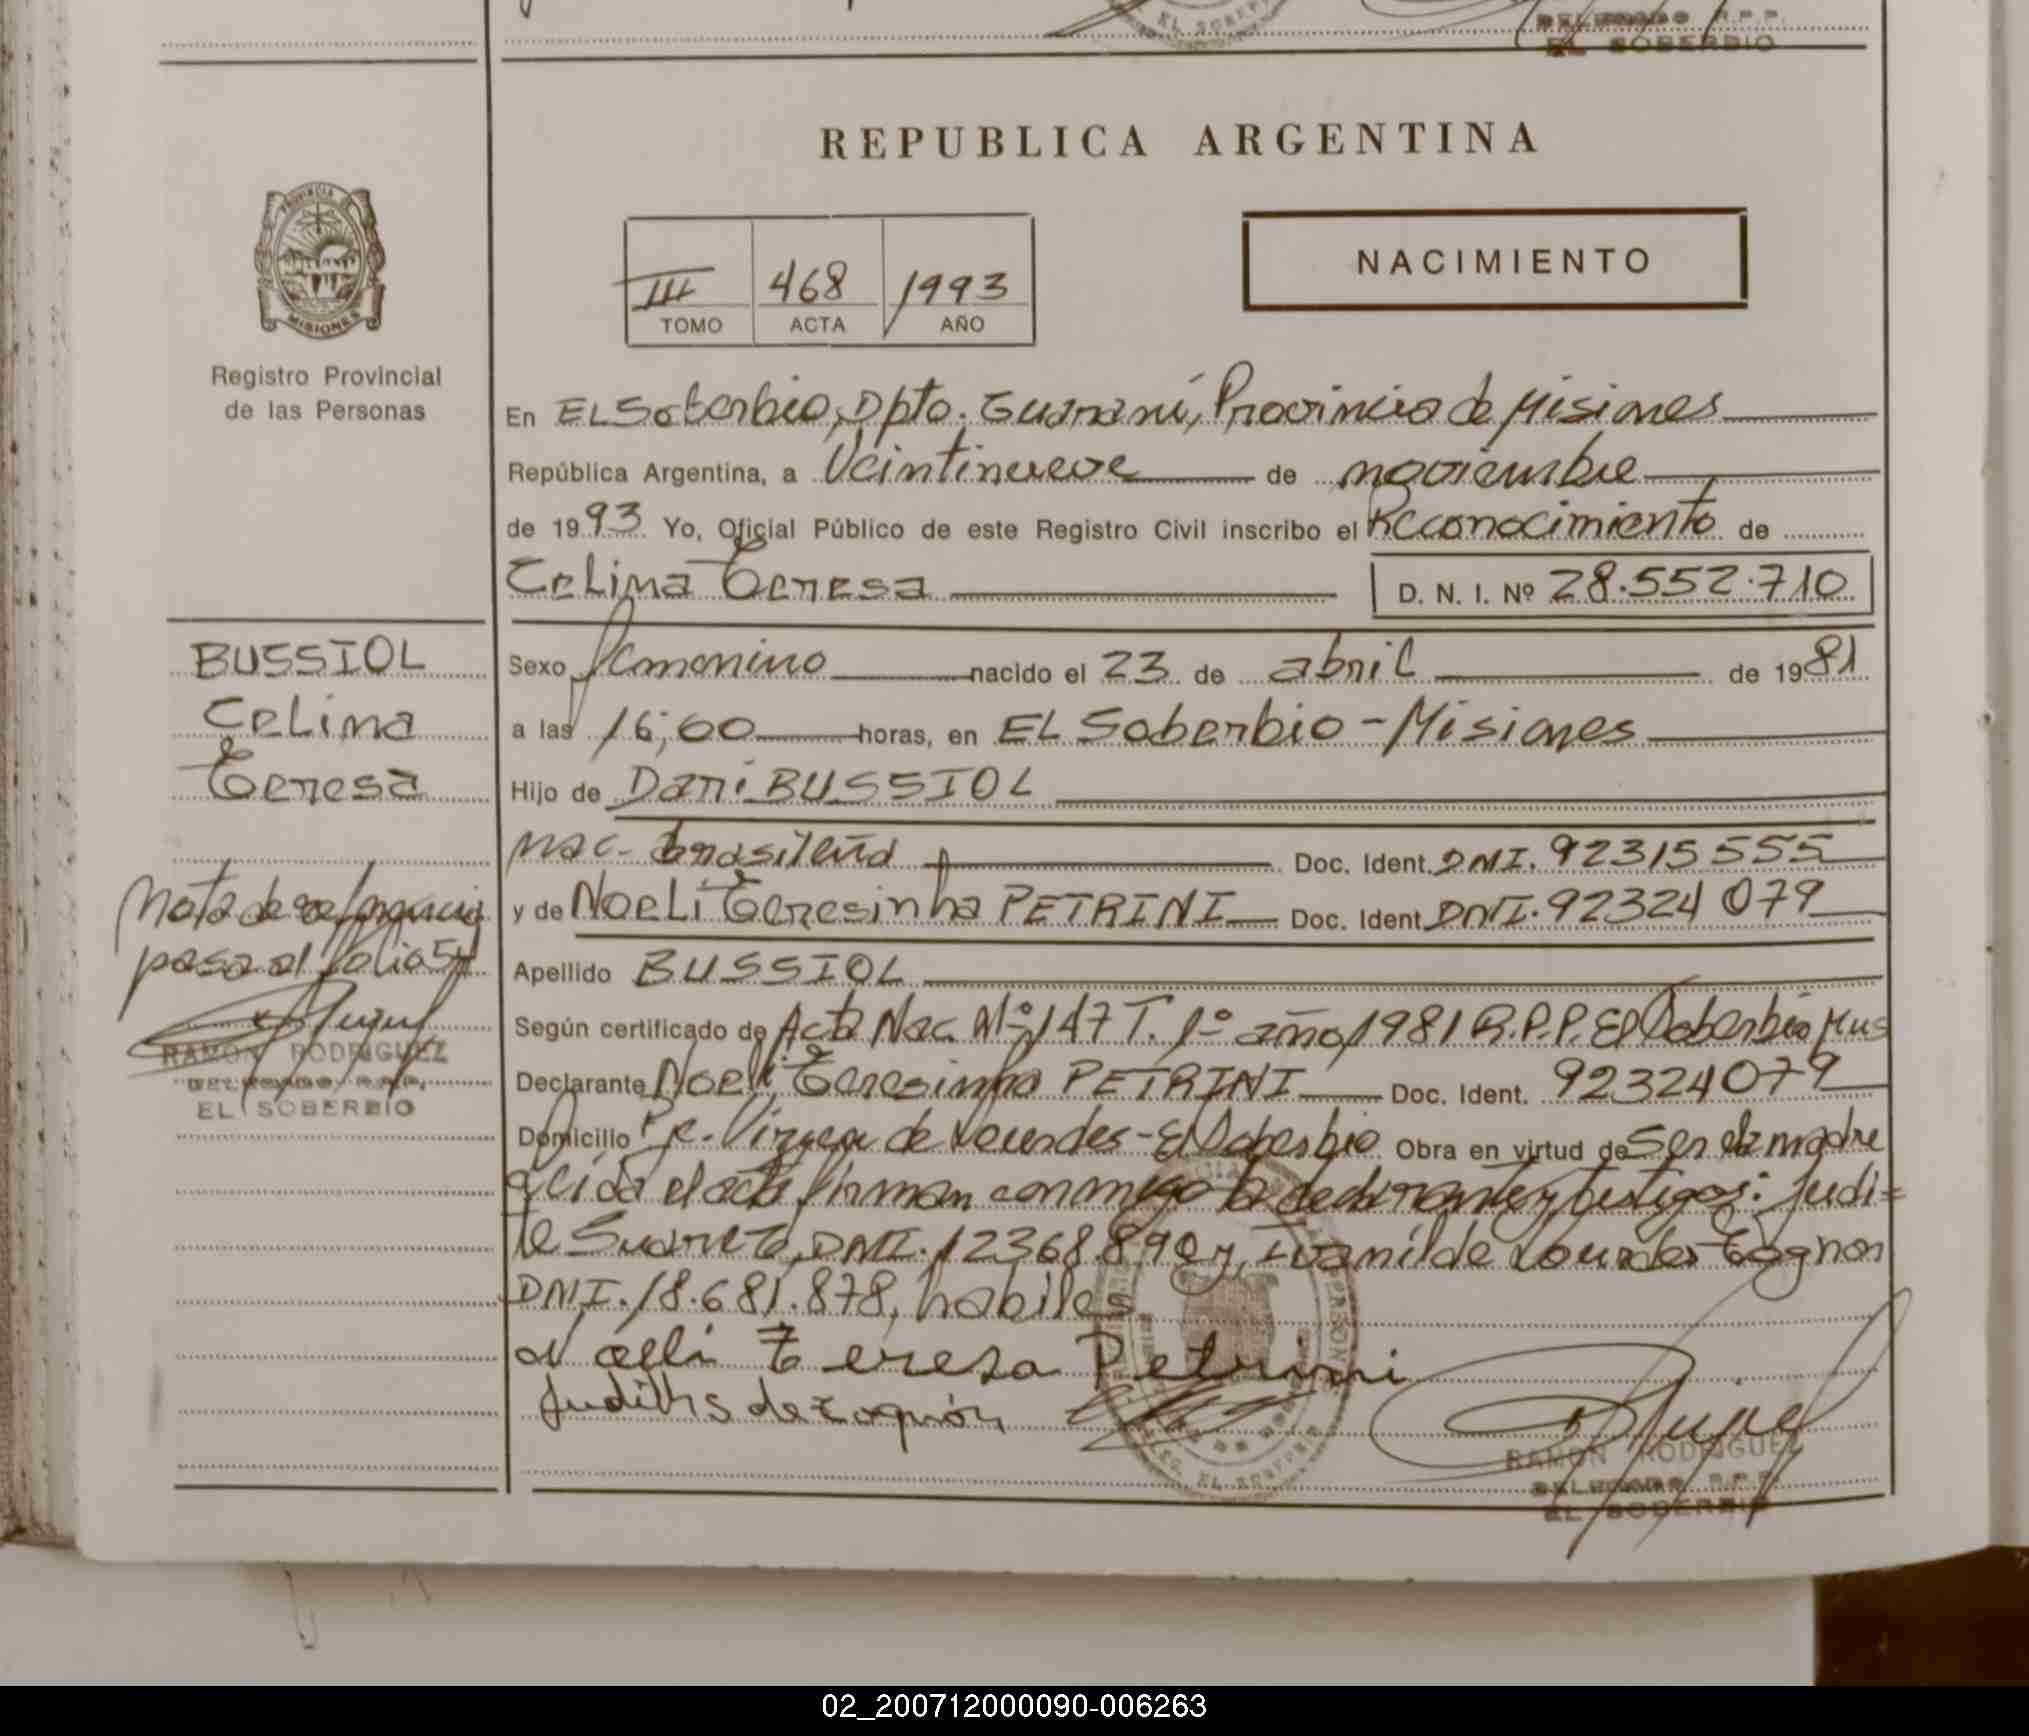 EL SOBERBIO
REPUBLICA ARGENTINA
NACIMIENTO
III 468 1993
TOMO ACTA AÑO
PROVINCIA
MISIONES
Registro Provincial
de las Personas
En EL Soberbio, Dpto. Guaraní, Provincia de Misiones
República Argentina, a Veintinueve de noviembre
de 1993 Yo, Oficial Público de este Registro Civil inscribo el Reconocimiento de
Celima Teresa D. N. I. Nº 28.552.710
BUSSIOL
Celima
Teresa
Sexo femenino nacido el 23 de abril de 1981
a las 16,00 horas, en EL Soberbio - Misiones
Hijo de Dari BUSSIOL
nac. brasileña Doc. Ident. DNI. 92315555
y de NoeLi Teresinha PETRINI Doc. Ident. DNI. 92324079
Apellido BUSSIOL
Según certificado de Acta Nac. Nº 147 T. 1º año 1981 R.P.P. El Soberbio Mns
Declarante Noeli Teresinha PETRINI Doc. Ident. 92324079
Domicilio Virgen de Lourdes - El Soberbio Obra en virtud de ser la madre
Leída el acta firman conmigo la declarante y testigos: Judi=
te DNI. 12368.890 y Ivanilde Lourdes Tognon
DNI. 18.681.878, habiles
Noeli Teresa Petrini
Nota de referencia
pasa al folio 54
RAMON RODRIGUEZ
DELEGADO R.P.P.
EL SOBERBIO
RAMON RODRIGUEZ
DELEGADO R.P.P.
EL SOBERBIO
02_200712000090-006263